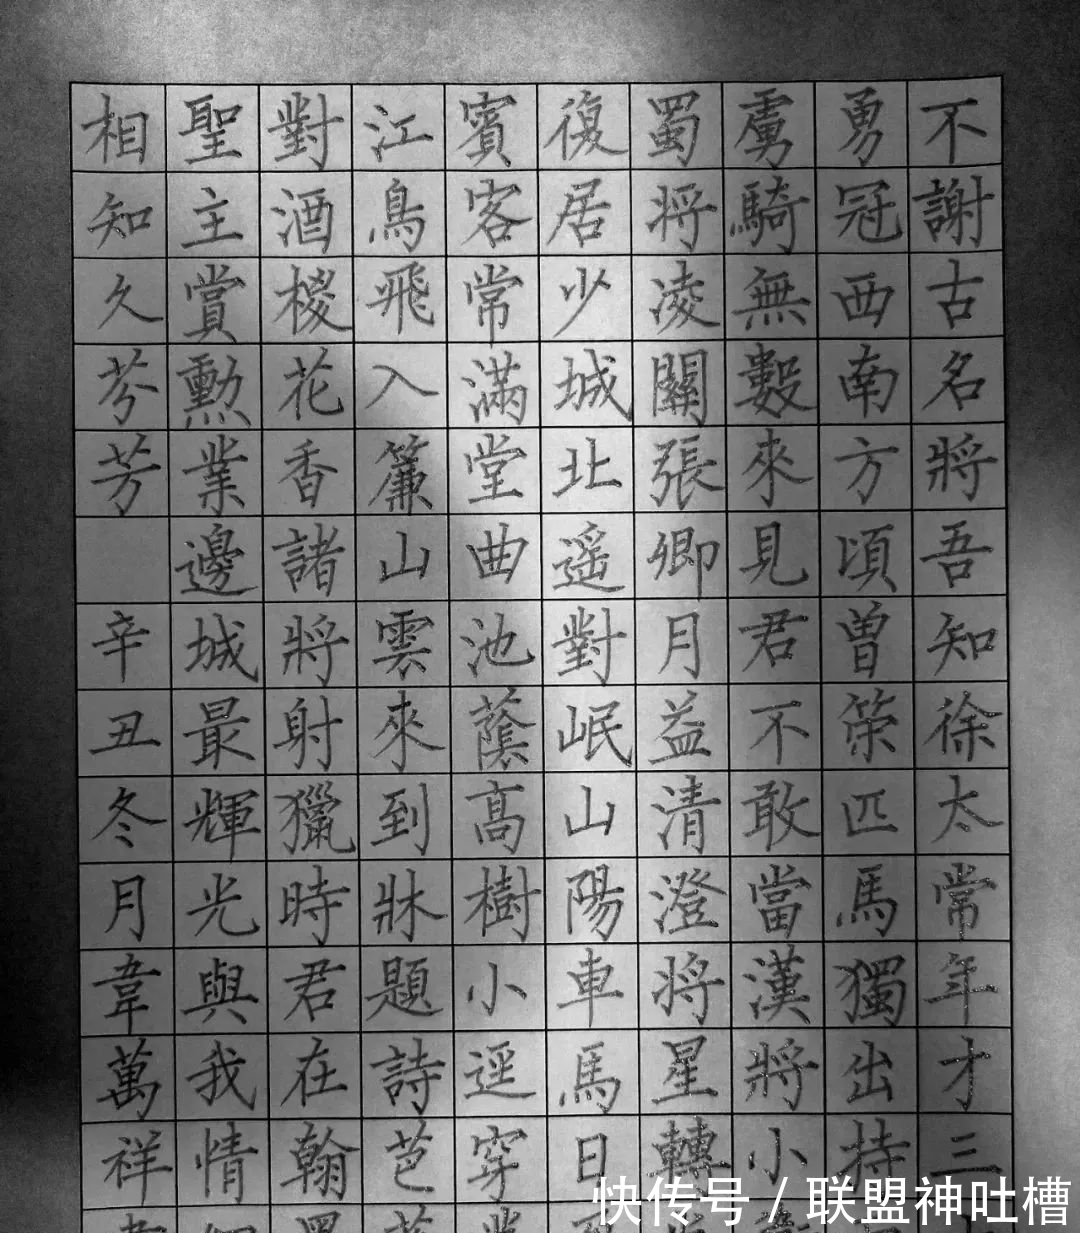 不謝古名將吾知徐太常年才三
勇冠西南方頃曾策匹馬獨出持
虜騎無數來見君不敢當漢將小
蜀将凌關張卿月益清澄将星轉
復居少城北遥對岷山陽車馬日
賓客常滿堂曲池蔭高樹小逕穿
江鳥飛入簾山雲來到牀題詩芭
對酒椶花香諸將射獵時君在翰
聖主賞勳業邊城最輝光與我情
相知久芬芳 辛丑冬月韋萬祥
快传号 / 联盟神吐槽